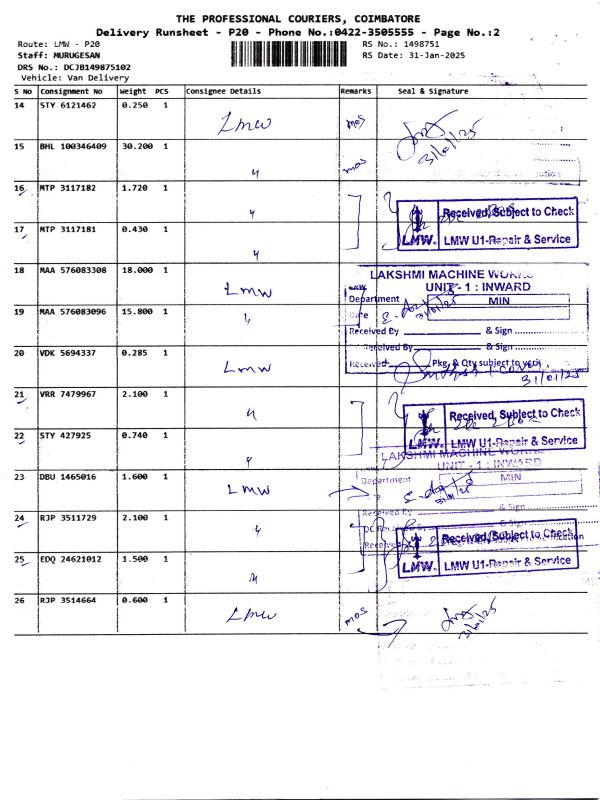 THE PROFESSIONAL COURIERS, COIMBATORE
Delivery Runsheet - P20 - Phone No.:0422-3505555 - Page No.:2
Route: LMW - P20
RS No.: 1498751
Staff: MURUGESAN
RS Date: 31-Jan-2025
DRS No.: DCJB149875102
Vehicle: Van Delivery
S No Consignment No Weight PCS Consignee Details Remarks Seal & Signature
14 STY 6121462 0.250 1 LMW mos 31/01/25
15 BHL 100346409 30.200 1 " mos
16 MTP 3117182 1.720 1 "
Received, Subject to Check
LMW. LMW U1-Repair & Service
17 MTP 3117181 0.430 1 "
18 MAA 576083308 18.000 1 LMW
LAKSHMI MACHINE WORKS
UNIT - 1 : INWARD
Department MIN
19 MAA 576083096 15.800 1 "
Date 31/01/25
Received By & Sign
20 VDK 5694337 0.285 1 LMW
Received By & Sign
Received Pkg. & Qty subject to
31/01/25
21 VRR 7479967 2.100 1 "
Received, Subject to Check
LMW. LMW U1-Repair & Service
22 STY 427925 0.740 1 "
LAKSHMI MACHINE WORKS
UNIT - 1 : INWARD
23 DBU 1465016 1.600 1 LMW
Department MIN
& Sign
24 RJP 3511729 2.100 1 "
Received, Subject to Check
LMW. LMW U1-Repair & Service
25 EDQ 24621012 1.500 1 "
26 RJP 3514664 0.600 1 LMW mos 31/01/25